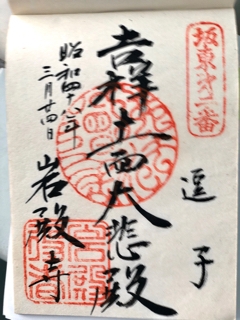 坂東第二番
逗子
吉祥十一面大悲殿
岩殿寺
昭和四十八年
三月廿四日